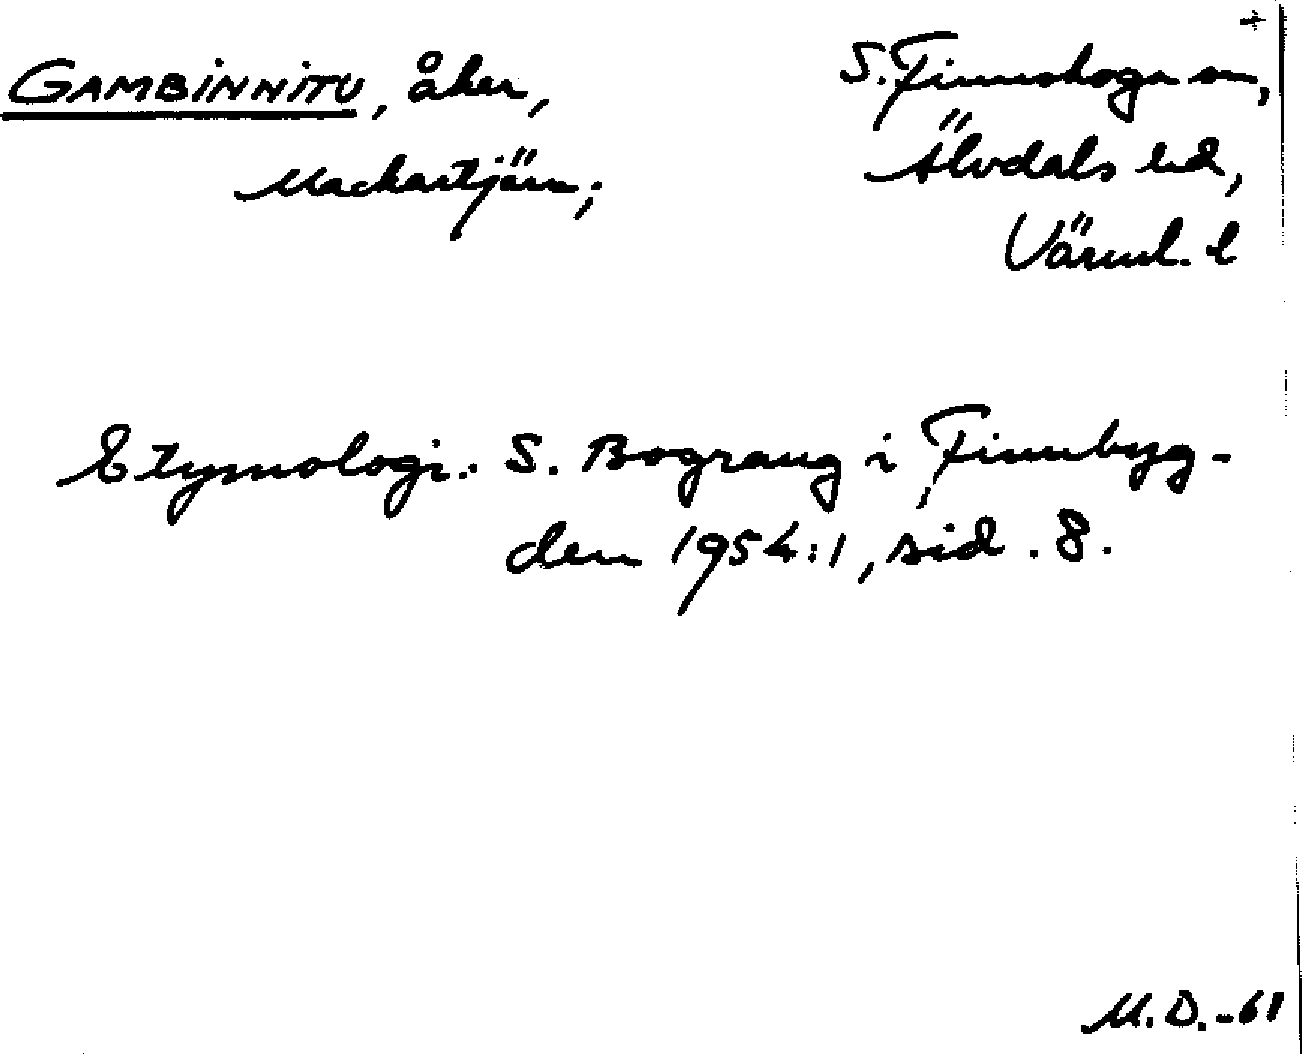 +
GAMBINNITU, åker, S. Finnskoga sn,
Mackartjärn; Älvdals hd,
Värml. l
Etymologi: S. Bograng i Finnbyg-
den 1954:1, sid. 8.
M.D.-61